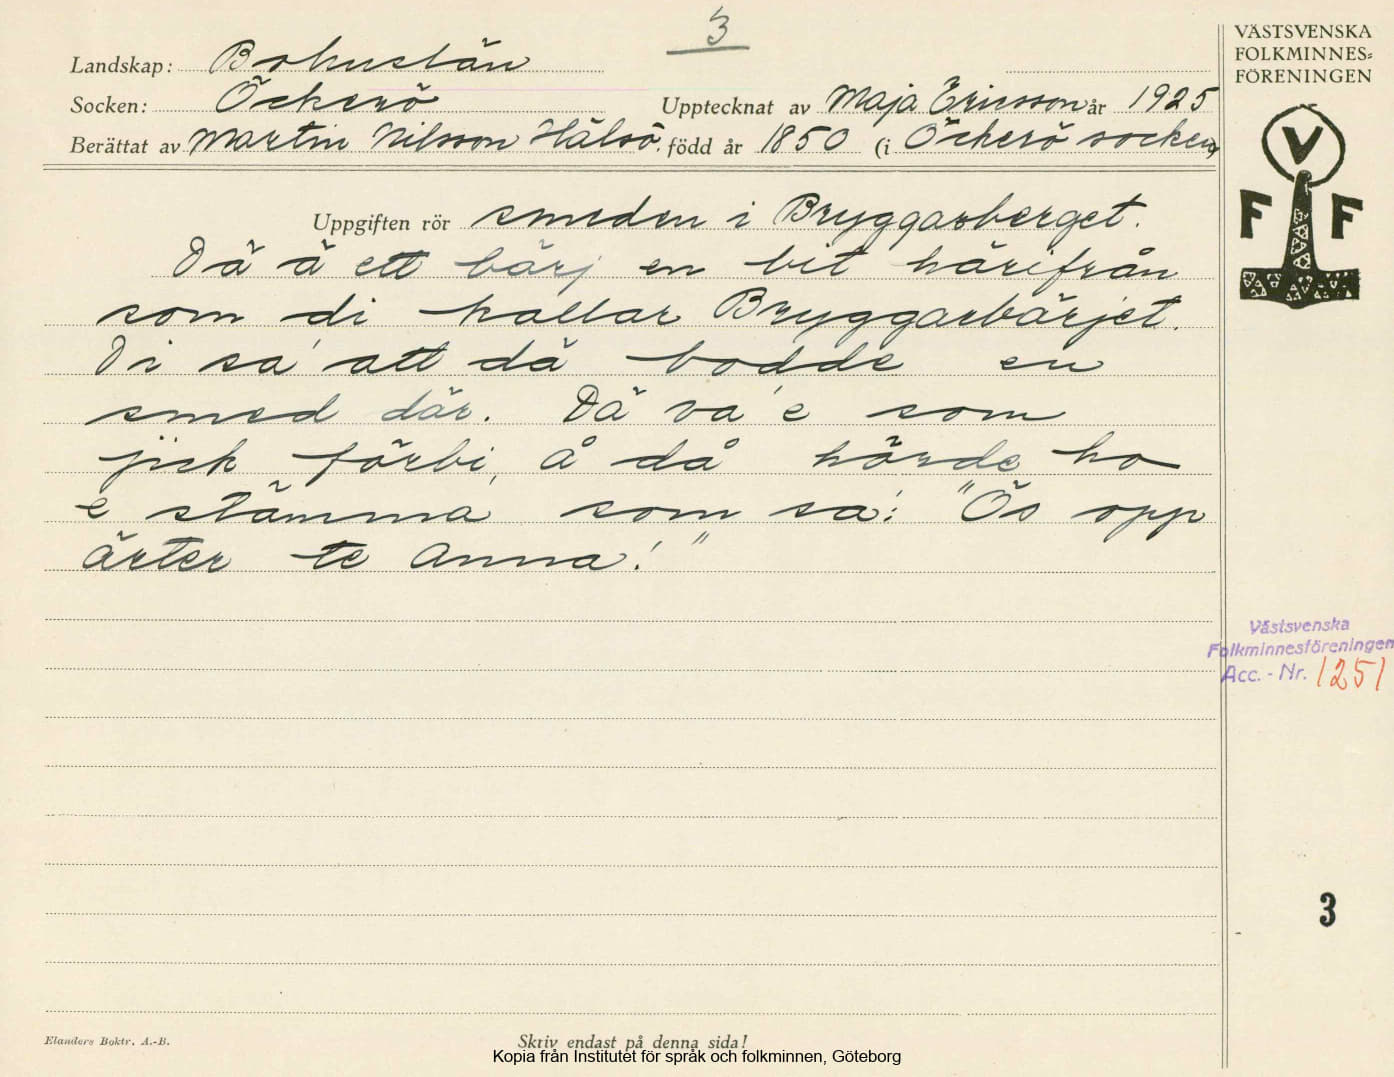 3
VÄSTSVENSKA
FOLKMINNES=
FÖRENINGEN
Landskap: Bohuslän
Socken: Öckerö Upptecknat av Maja Ericsson år 1925
Berättat av Martin Nilsson Hälsö. född år 1850 (i Öckerö socken)
V
F F
Uppgiften rör smeden i Bryggarberget.
Dä ä ett bärj en bit härifrån
som di kallar Bryggarbärjet.
Di sa' att dä bodde en
smed där. Dä va' e som
jick förbi, å då hörde ho
e stämma som sa': "Ös opp
ärter te Anna!"
Västsvenska
Folkminnesföreningen
Acc. - Nr. 1251
3
Elanders Boktr. A.-B.
Skriv endast på denna sida!
Kopia från Institutet för språk och folkminnen, Göteborg